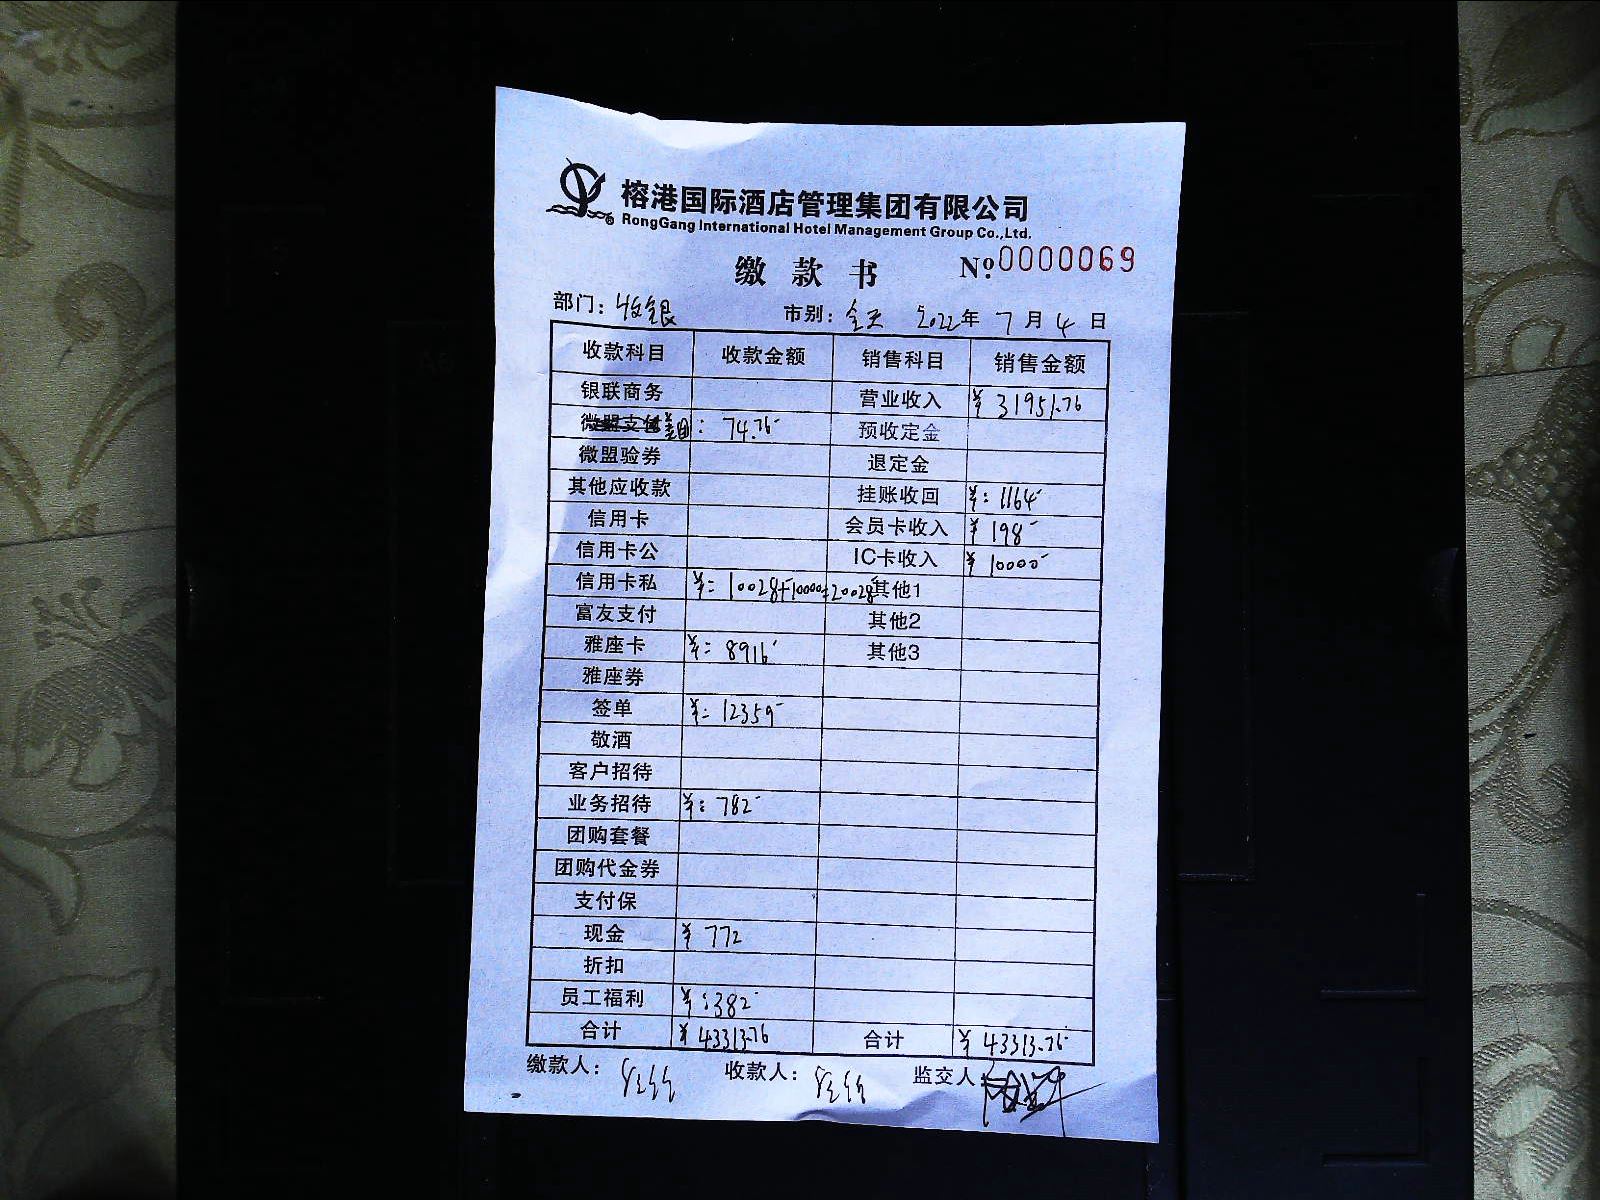 榕港国际酒店管理集团有限公司
RongGang International Hotel Management Group Co.,Ltd.
缴款书 №0000069
部门：收银 市别：全天 2022年7月4日
收款科目 收款金额 销售科目 销售金额
银联商务 营业收入 ¥31951.76
微盟支付美团：74.76 预收定金
微盟验券 退定金
其他应收款 挂账收回 ¥：1164
信用卡 会员卡收入 ¥198
信用卡公 IC卡收入 ¥10000
信用卡私 ¥：10028+10000=20028 其他1
富友支付 其他2
雅座卡 ¥：8916 其他3
雅座券
签单 ¥：12359
敬酒
客户招待
业务招待 ¥：782
团购套餐
团购代金券
支付保
现金 ¥772
折扣
员工福利 ¥：382
合计 ¥43313.76 合计 ¥43313.76
缴款人： 收款人： 监交人